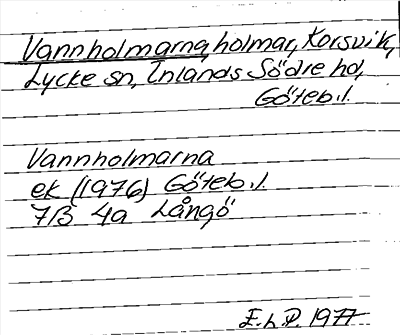 Vannholmarna, holmar, Korsvik,
Lycke sn, Inlands Södre hd,
Göteb. l.
Vannholmarna
ek (1976) Göteb. l.
7B 4a Långö
E. h P. 1977